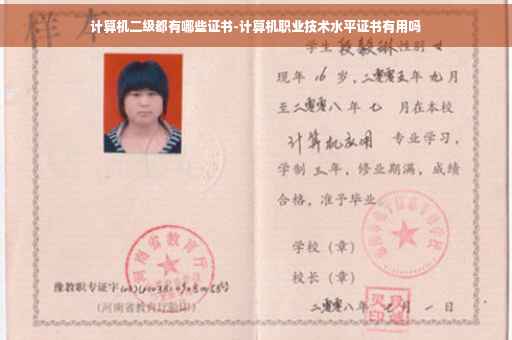 计算机二级都有哪些证书-计算机职业技术水平证书有用吗
样本
学生段毅琳性别女
现年16岁，二零零五年九月
至二零零八年七月在本校
计算机应用专业学习，
学制三年，修业期满，成绩
合格，准予毕业。
学校（章）
校长（章）
二零零八年七月一日
河南省教育厅
豫教职专证字
（河南省教育厅验印）